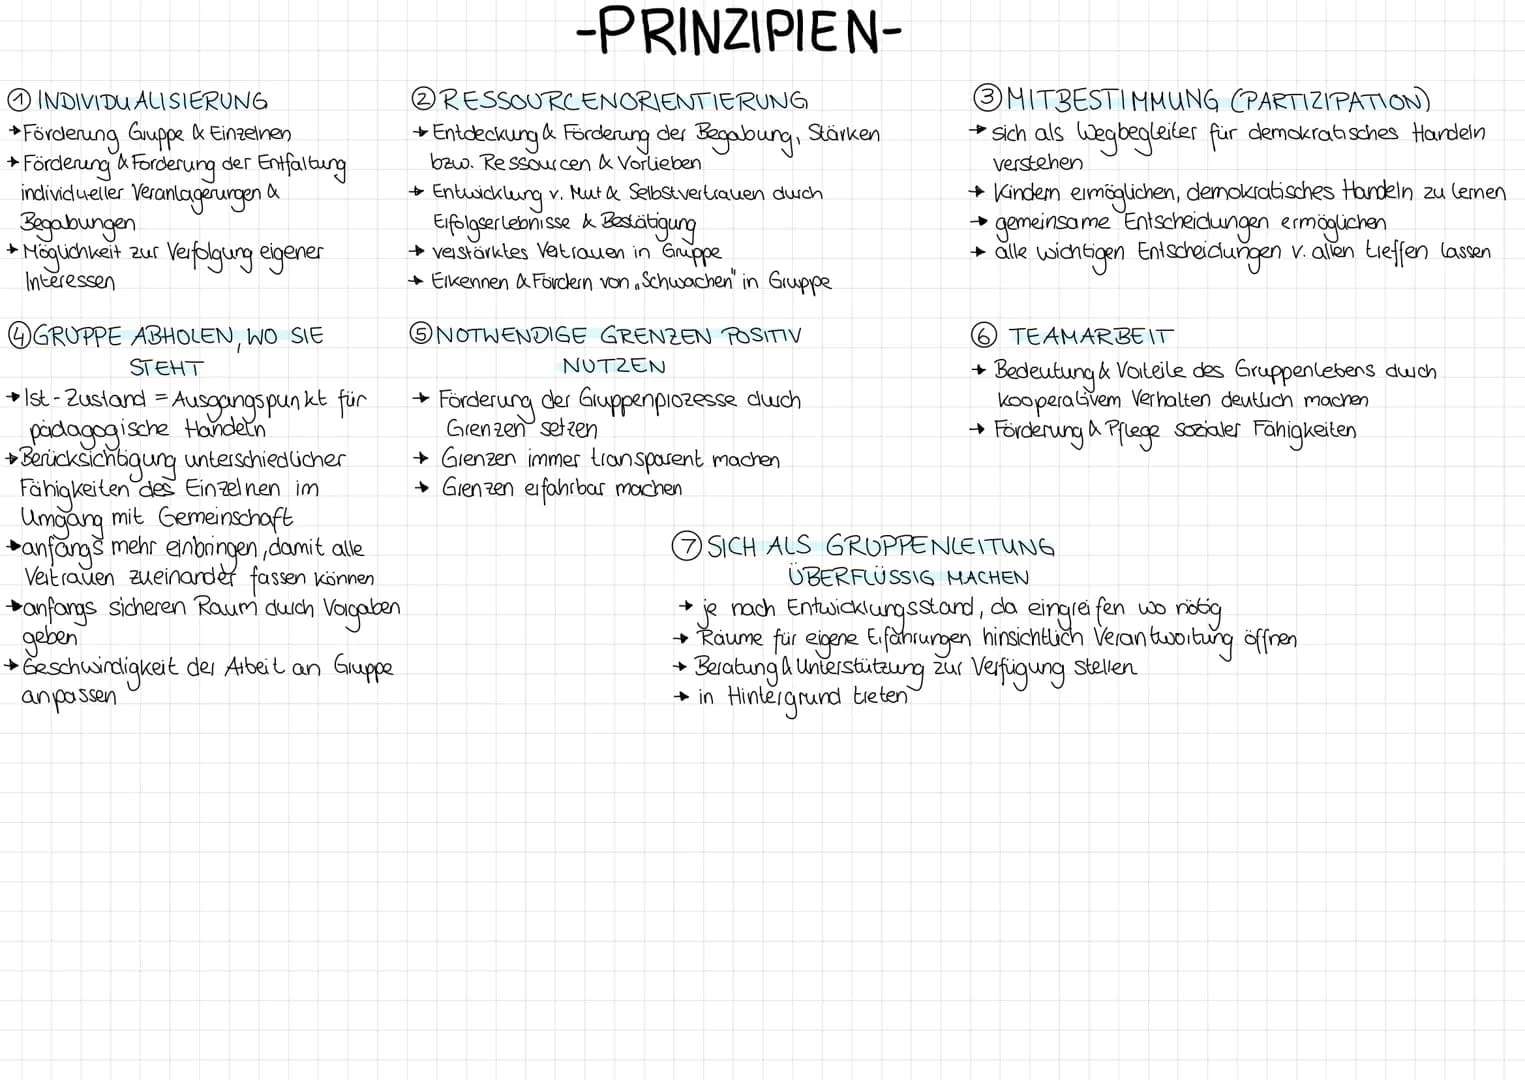 -PRINZIPIEN-
① INDIVIDUALISIERUNG
→ Förderung Gruppe & Einzelnen
→ Förderung & Forderung der Entfaltung
individueller Veranlagerungen &
Begabungen
→ Möglichkeit zur Verfolgung eigener
Interessen
② RESSOURCENORIENTIERUNG
→ Entdeckung & Förderung der Begabung, Stärken
bzw. Ressourcen & Vorlieben
→ Entwicklung v. Mut & Selbstvertrauen durch
Erfolgserlebnisse & Bestätigung
→ verstärktes Vertrauen in Gruppe
→ Erkennen & Fördern von „Schwachen" in Gruppe
③ MITBESTIMMUNG (PARTIZIPATION)
→ sich als Wegbegleiter für demokratisches Handeln
verstehen
→ Kindern ermöglichen, demokratisches Handeln zu lernen
→ gemeinsame Entscheidungen ermöglichen
→ alle wichtigen Entscheidungen v. allen treffen lassen
④ GRUPPE ABHOLEN, WO SIE
STEHT
→ Ist-Zustand = Ausgangspunkt für
pädagogische Handeln
→ Berücksichtigung unterschiedlicher
Fähigkeiten des Einzelnen im
Umgang mit Gemeinschaft
→ anfangs mehr einbringen, damit alle
Vertrauen zueinander fassen können
→ anfangs sicheren Raum durch Vorgaben
geben
→ Geschwindigkeit der Arbeit an Gruppe
anpassen
⑤ NOTWENDIGE GRENZEN POSITIV
NUTZEN
→ Förderung der Gruppenprozesse durch
Grenzen setzen
→ Grenzen immer transparent machen
→ Grenzen erfahrbar machen
⑥ TEAMARBEIT
→ Bedeutung & Vorteile des Gruppenlebens durch
kooperativem Verhalten deutlich machen
→ Förderung & Pflege sozialer Fähigkeiten
⑦ SICH ALS GRUPPENLEITUNG
ÜBERFLÜSSIG MACHEN
→ je nach Entwicklungsstand, da eingreifen wo nötig
→ Räume für eigene Erfahrungen hinsichtlich Verantwortung öffnen
→ Beratung & Unterstützung zur Verfügung stellen
→ in Hintergrund treten